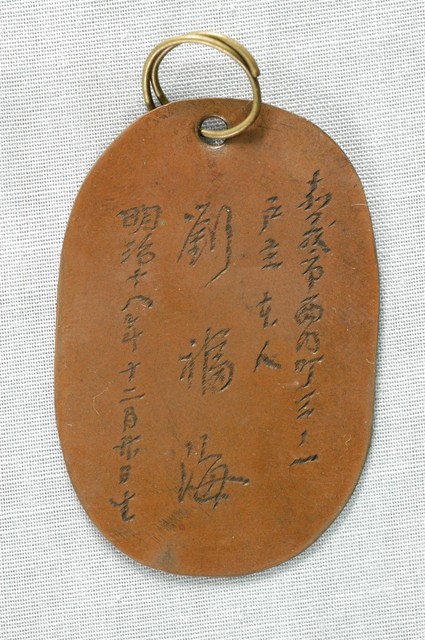 嘉義市西門町三ノ一
戶主 本人
劉福海
明治十八年十二月廿日生